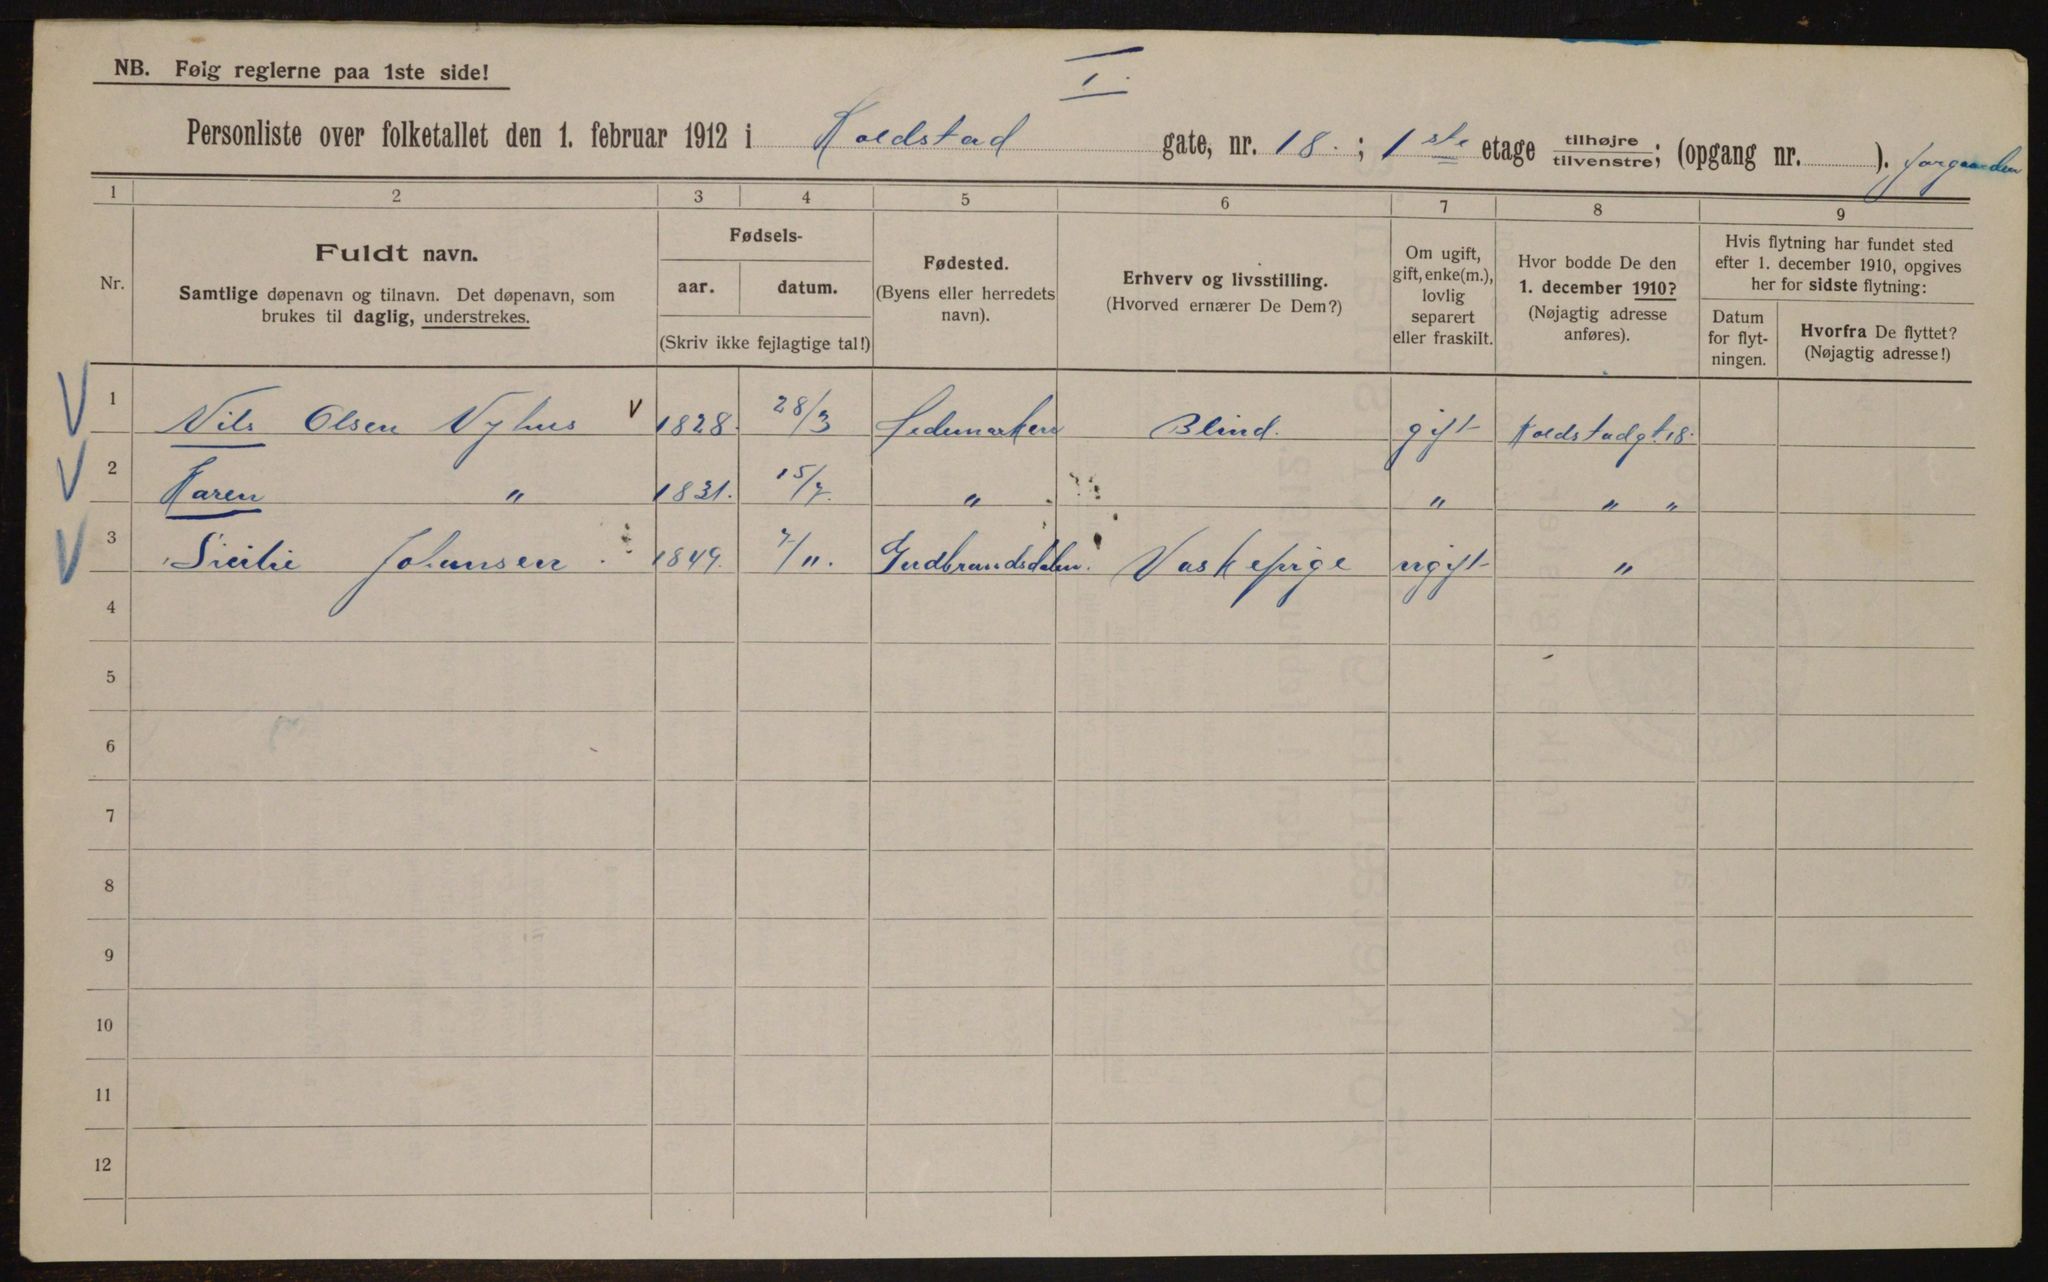 I.
NB. Følg reglerne paa 1ste side!
Personliste over folketallet den 1. februar 1912 i Koldstad gate, nr. 18. ; 1ste etage tilhøjre tilvenstre; (opgang nr. ). forgaarden
1 2 3 4 5 6 7 8 9
Nr.
Fuldt navn.
Samtlige døpenavn og tilnavn. Det døpenavn, som
brukes til daglig, understrekes.
Fødsels-
aar. datum.
(Skriv ikke fejlagtige tal!)
Fødested.
(Byens eller herredets
navn).
Erhverv og livsstilling.
(Hvorved ernærer De Dem?)
Om ugift,
gift, enke(m.),
lovlig
separert
eller fraskilt.
Hvor bodde De den
1. december 1910?
(Nøjagtig adresse
anføres).
Hvis flytning har fundet sted
efter 1. december 1910, opgives
her for sidste flytning:
Datum
for flyt-
ningen.
Hvorfra De flyttet?
(Nøjagtig adresse!)
V 1 Nils Olsen Nyhus V 1828. 28/3 Hedemarken Blind. gift Koldstadgt. 18.
V 2 Karen " 1831. 15/7. " " " "
V 3 Sicilie Johansen. 1849. 7/11. Gudbrandsdalen. Vaskepige ugift "
4
5
6
7
8
9
10
11
12